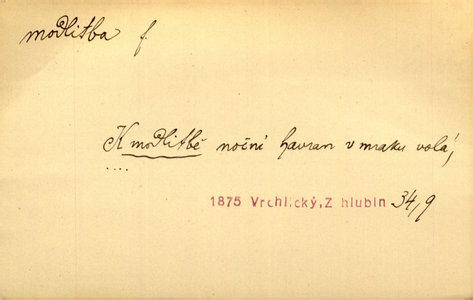 modlitba f.
K modlitbě noční havran v mraku volá,
....
1875 Vrchlický, Z hlubin 34/9